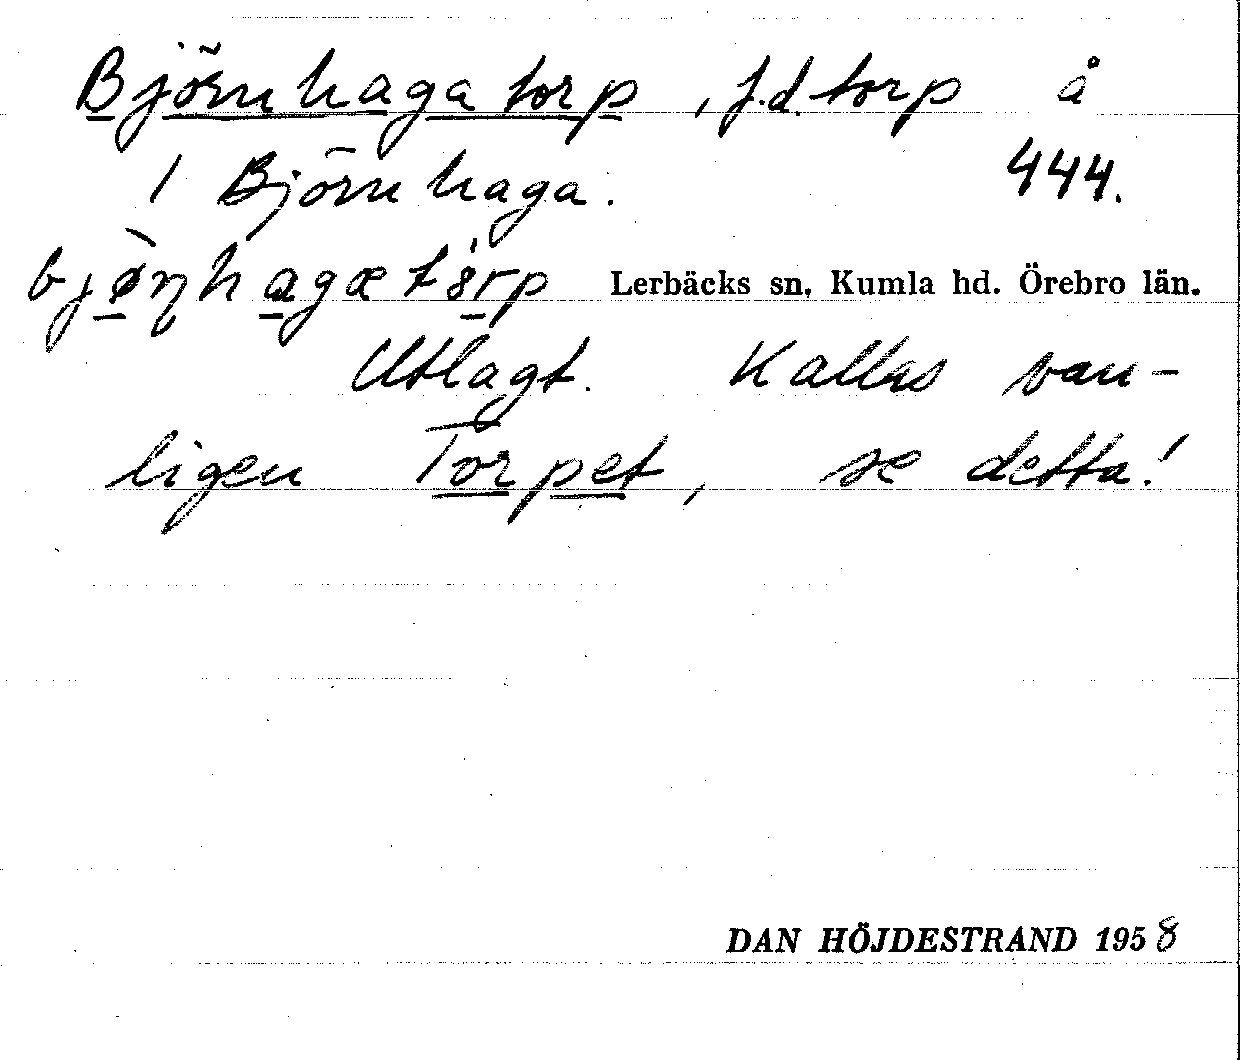 Björnhagatorp, f.d. torp å
1 Björnhaga. 444.
Lerbäcks sn, Kumla hd. Örebro län.
Utlagt. Kallas van-
ligen Torpet, se detta!
DAN HÖJDESTRAND 1958